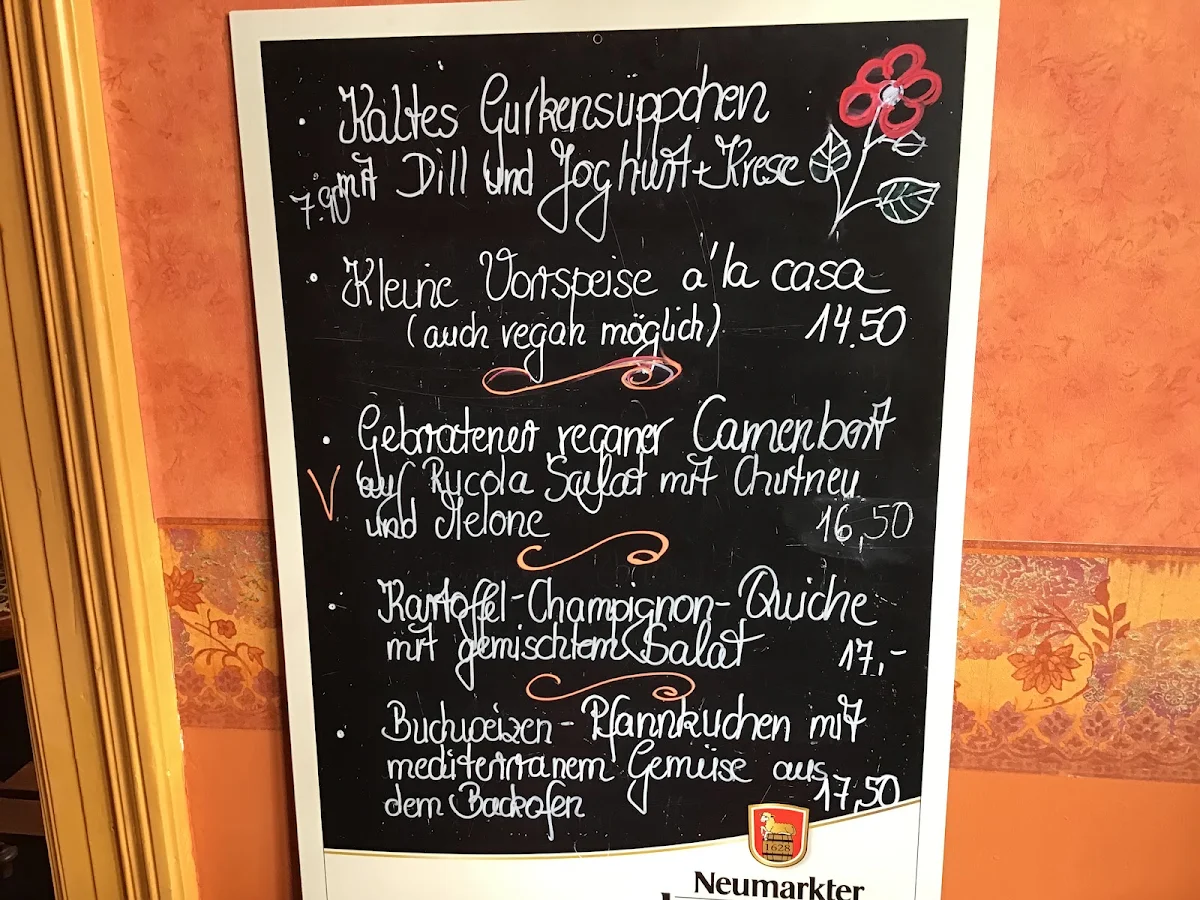 Kaltes Gurkensüppchen
mit Dill und Joghurt + Kresse
7.90
Kleine Vorspeise a'la casa
(auch vegan möglich) 14.50
Gebratener veganer Camenbert
V auf Rucola Salat mit Chutney
und Melone 16,50
Kartoffel-Champignon-Quiche
mit gemischtem Salat 17,-
Buchweizen-Pfannkuchen mit
mediterranem Gemüse aus
dem Backofen 17,50
1628
Neumarkter